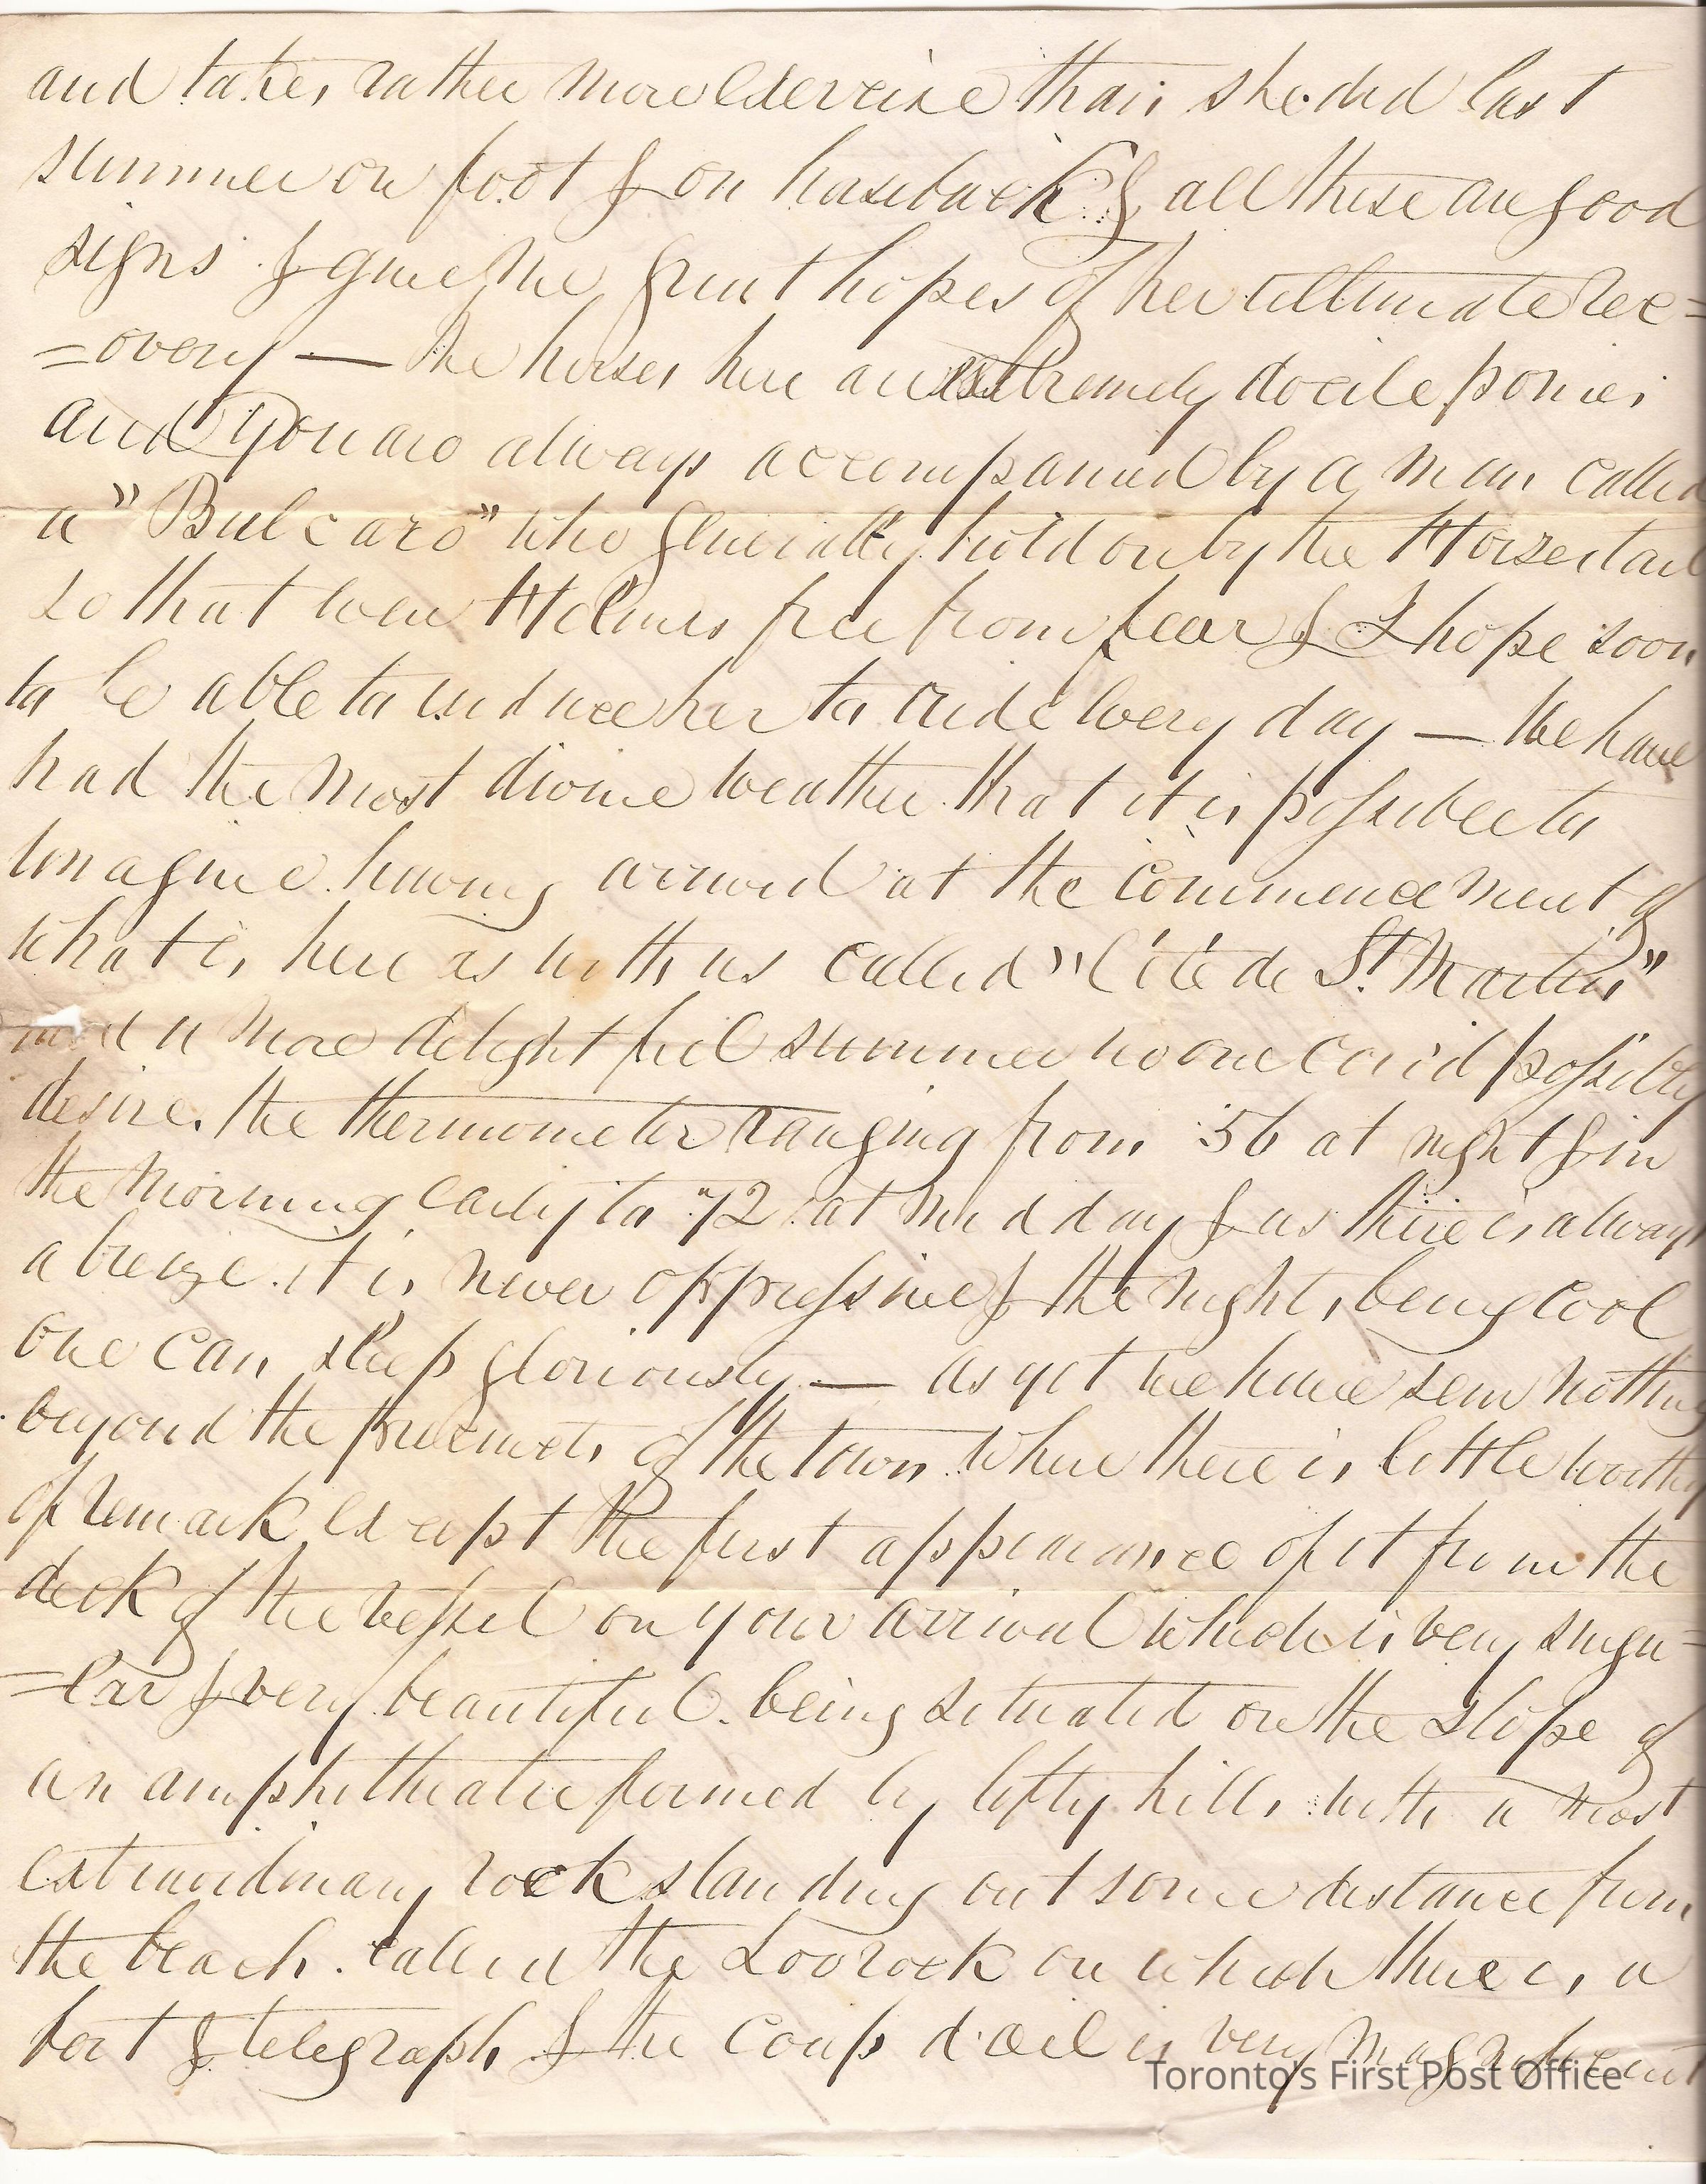 and takes rather more Exercise than she did last
summer on foot & on horseback & all these are good
signs & give me great hopes of her ultimate rec=
=overy — The horses here are extremely docile ponies
and you are always accompanied by a man called
a "Bulcaro" who generally hold on by the Horses tail
so that even Holmes free from fear & I hope soon
to be able to induce her to ride every day — We have
had the most divine weather that it is possible to
imagine having arrived at the commencement of
what is here as with us called "l'été de St. Martin"
and a more delightful summer no one could possibly
desire. the thermometer ranging from 56 at night & in
the morning early to 72 at mid day & as there is always
a breeze it is never oppressive & the nights being cool
one can sleep gloriously — As yet we have seen nothing
beyond the precincts of the town where there is little worthy
of remark except the first appearance of it from the
deck of the vessel on your arrival which is very singu=
=lar & very beautiful. being situated on the slope of
an amphitheatre formed by lofty hills with a most
extraordinary rock standing out some distance from
the beach. called the Loo rock on which there is a
fort & telegraph & the coup d'oeil is very magnificent
Toronto's First Post Office